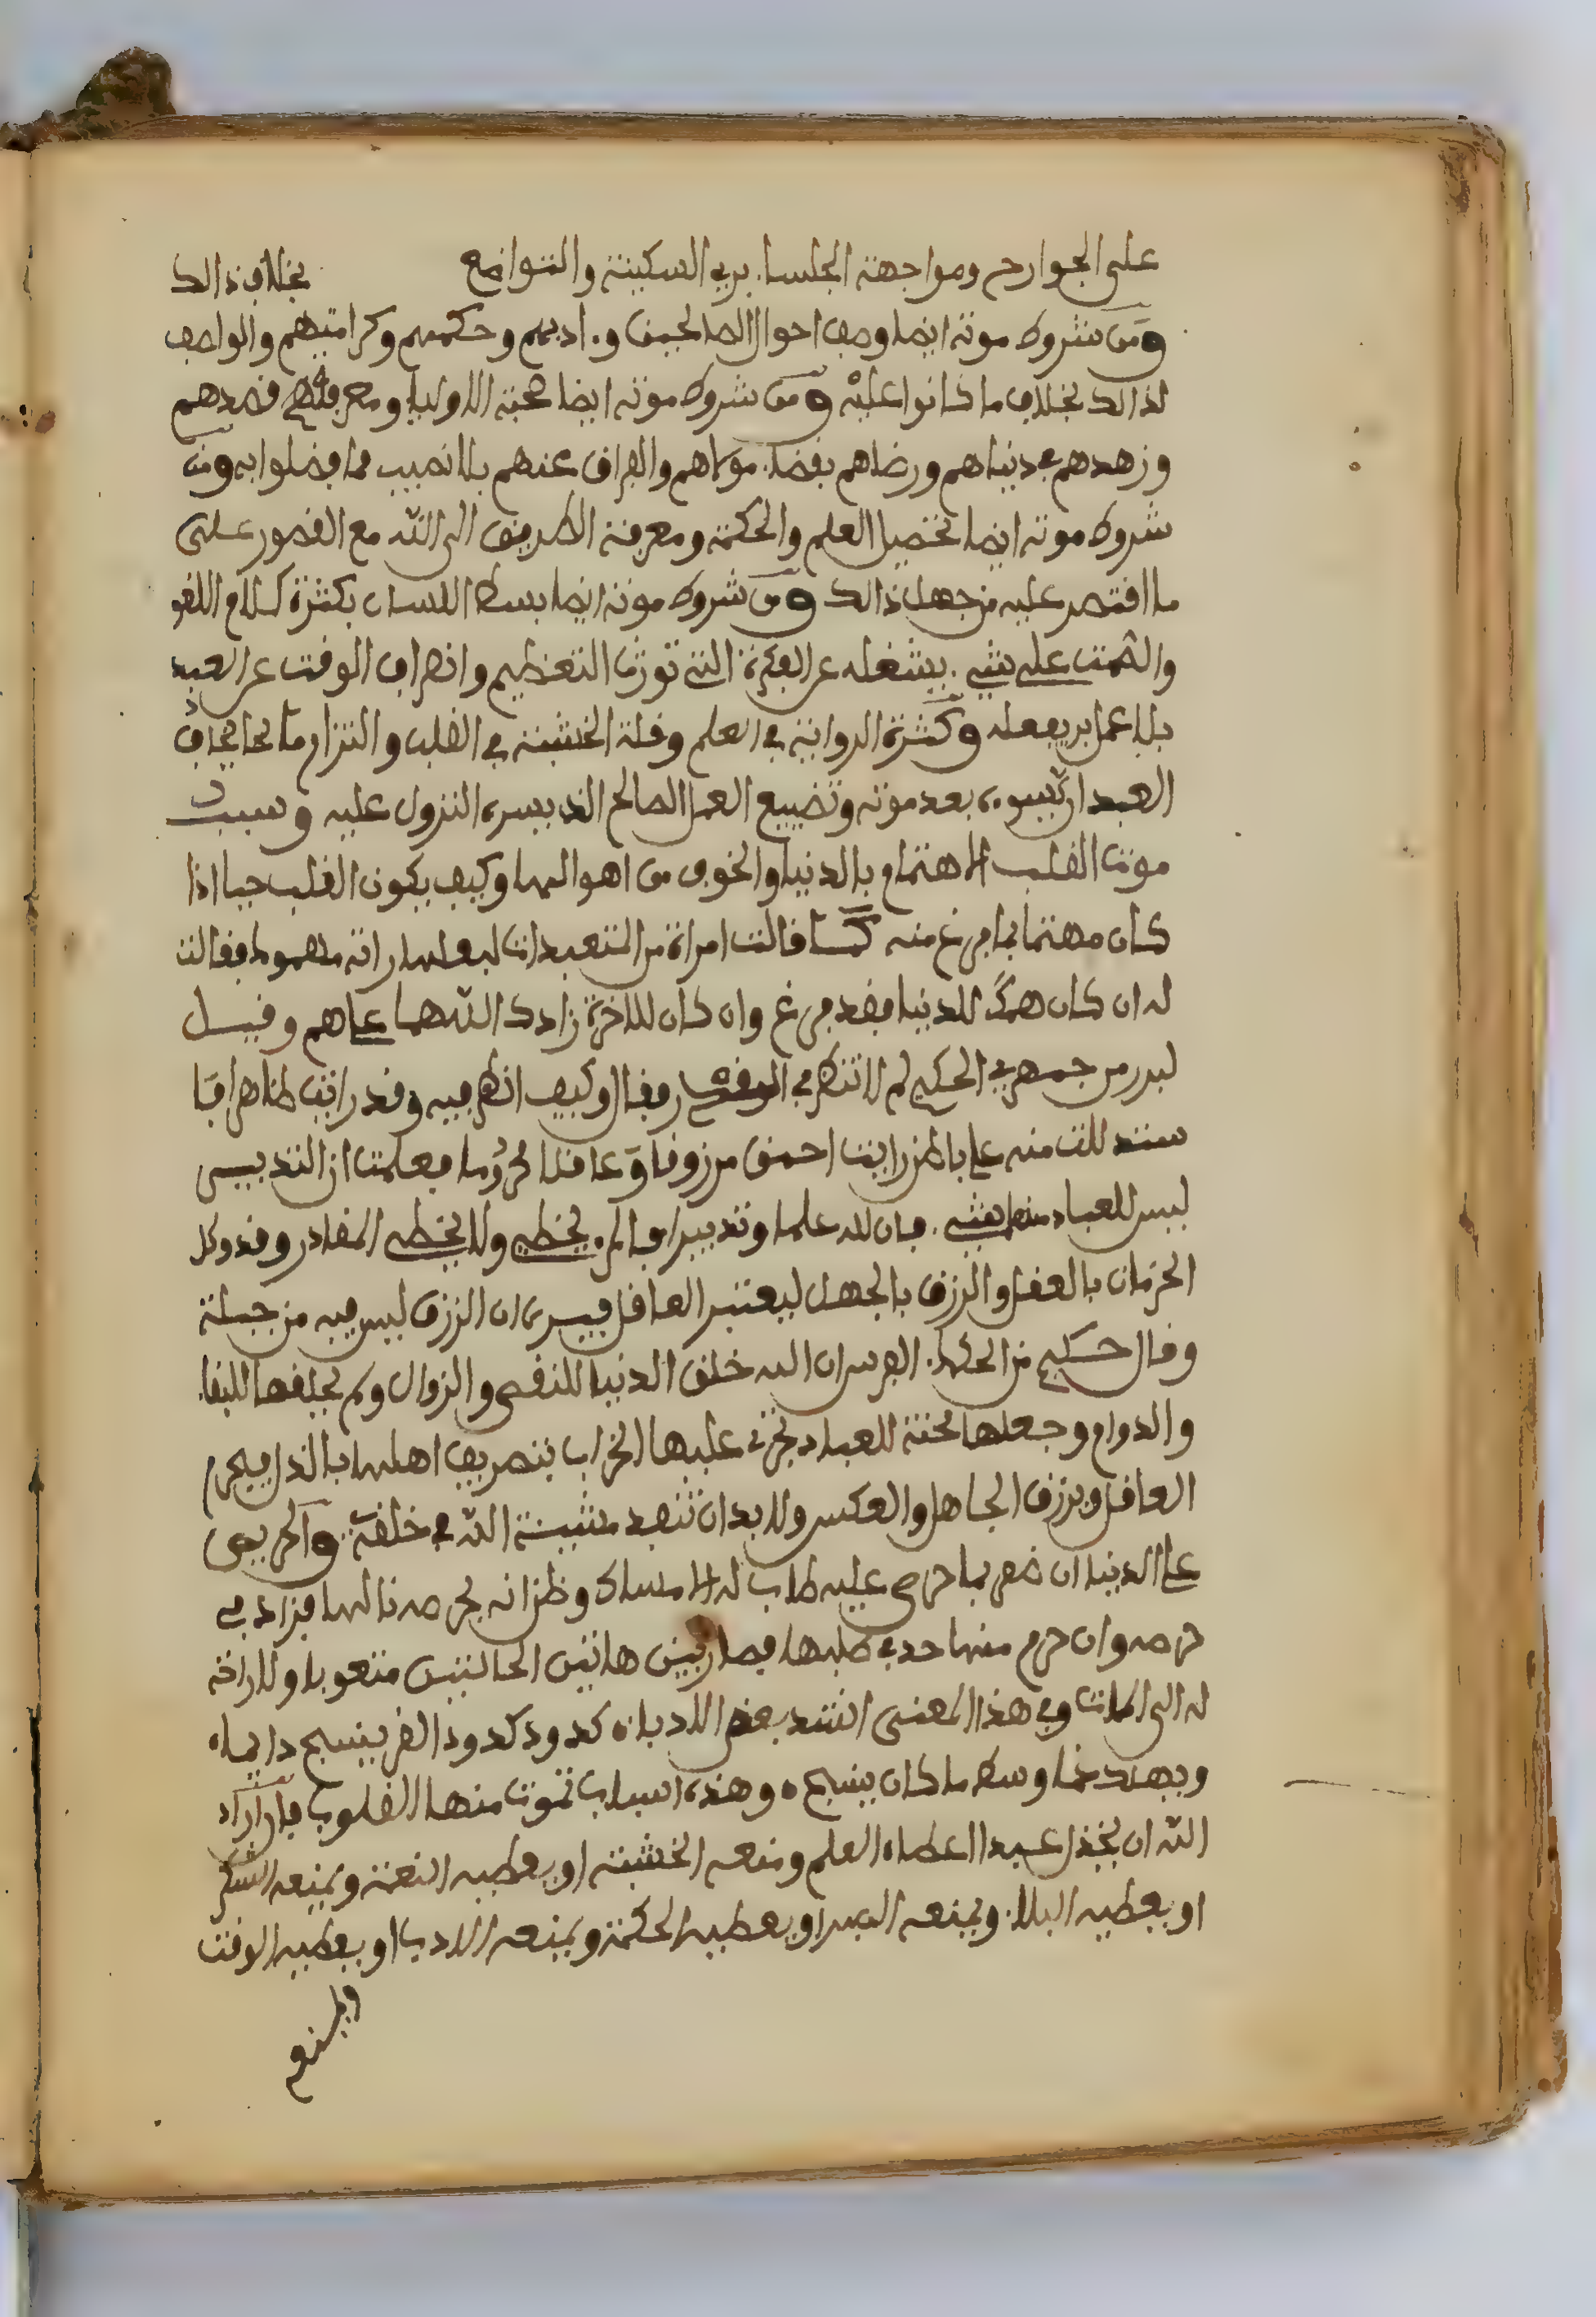 على الجوارح ومواجهة الجلساء بزي السكينة والتواضع بخلاف ذالك
ومن شروط موته ايضا وصف احوال الصالحين وءادبهم وحكمهم وكراماتهم والواصف
لذالك بخلاف ما كانوا عليه ومن شروط موته ايضا صحبة الاولياء ومعرفة قصدهم
وزهدهم في دنياهم ورضاهم بقضاء مولاهم والفراق عنهم بلا نصيب مما فضلوا به ومن
شروط موته ايضا تحصيل العلم والحكمة ومعرفة الطريق الى الله مع القصور على
ما اقتصر عليه من جهل ذالك ومن شروط موته ايضا بسط اللسان بكثرة كلام اللغو
والصمت على شيء يشغله عن الفكرة التي تورث التعظيم وانصراف الوقت عن العبد
بلا عمل بر يفعله وكثرة الرواية في العلم وقلة الخشية في القلب والتزام ما يخاف
العبد ان يسوءه بعد موته وتضييع العمل الصالح الذي يسره النزول عليه وسبب
موت القلب الاهتمام بالدنيا والخوف من اهوالها وكيف يكون القلب حيا اذا
كان مهتما بما فرغ منه كما قالت امراة من المتعبدات لبعلها راته مهموما فقالت
له ان كان همك للدنيا فقد فرغ وان كان للاخرة زادك الله هما على هم وقيل
لبزرجمهر الحكيم لم لا تنظر في فقال وكيف انظر فيه وقد رايت ظاهرا فا
ستدللت منه على باطن رايت احمق مرزوقا وعاقلا محروما فعلمت ان التدبير
ليس للعباد فان لله علما وتدبيرا يخطي ولا يخطي المقادر وقد وكل
الحرمان بالعقل والرزق بالجهل ليعتبر العاقل فيرى ان الرزق ليس فيه من حيلة
وقال حكيم من الحكماء الفرس ان الله خلق الدنيا للنقص والزوال ولم يخلقها للبقاء
والدوام وجعلها محنة للعباد يجري عليها الخراب بتصريف اهلها بالذا فيحرم
العاقل ويرزق الجاهل والعكس ولا بد ان تنفذ مشيئة الله في خلقه والحريص
على الدنيا ان ظفر بما حرص عليه طاب له الامساك وظن انه بحرصه نالها فزاد في
حرصه وان حرم منها جد في طلبها فصار بين هاتين الحالتين متعوبا ولا راحة
له الى الممات وفي هذا المعنى انشد بعض الادباء كدود كدود القز ينسج دايما
ويهلك غما وسط ما كان ينسج وهذه اسباب تموت منها القلوب فاذا اراد
الله ان يخذل عبدا اعطاه العلم ومنعه الخشية او يعطيه النعمة ويمنعه الشكر
او يعطيه البلاء ويمنعه الصبر او يعطيه الحكمة ويمنعه الادب او يعطيه الوقت
ويمنع